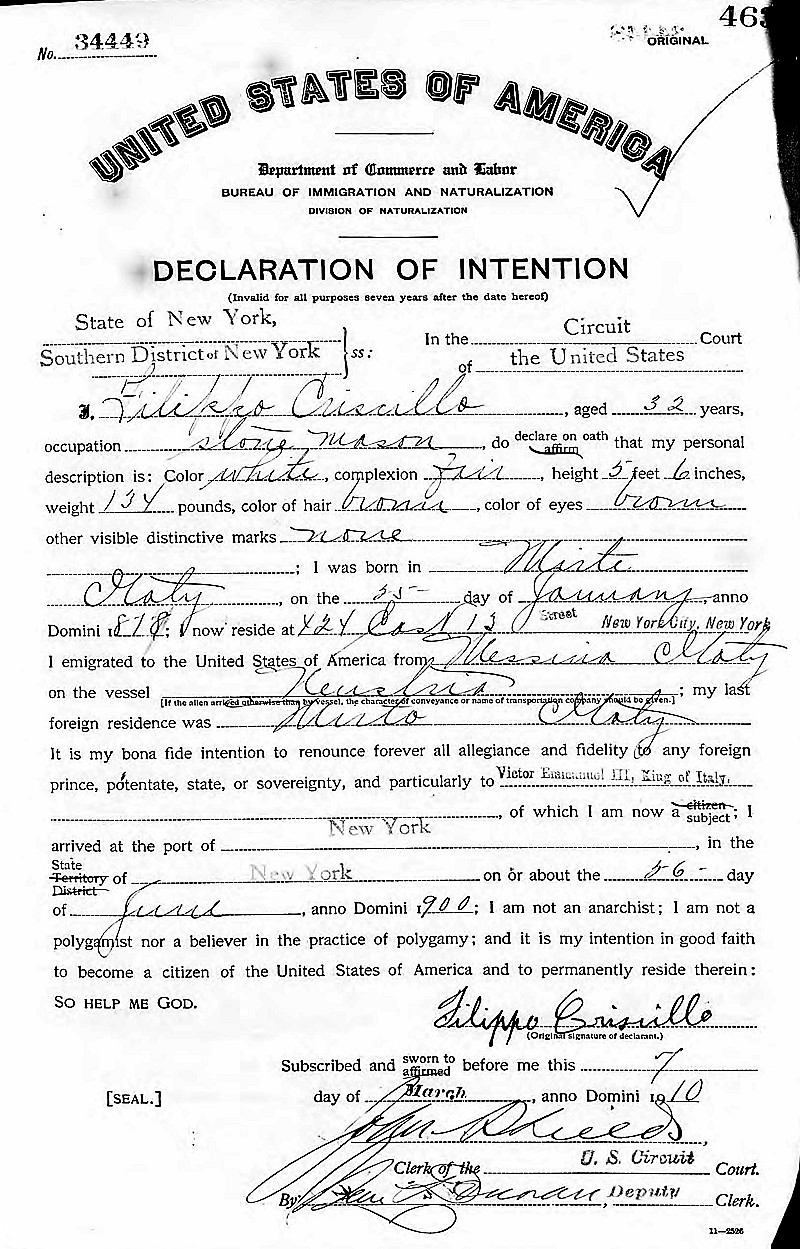 463
No. 34449
ORIGINAL
UNITED STATES OF AMERICA
Department of Commerce and Labor
BUREAU OF IMMIGRATION AND NATURALIZATION
DIVISION OF NATURALIZATION
DECLARATION OF INTENTION
(Invalid for all purposes seven years after the date hereof)
State of New York,
Southern District of New York ss:
In the Circuit Court
of the United States
I, Filippo Criscillo, aged 32 years,
occupation stone mason, do declare on oath affirm that my personal
description is: Color white, complexion Fair, height 5 feet 6 inches,
weight 134 pounds, color of hair brown, color of eyes brown
other visible distinctive marks none
; I was born in Mirto
Italy, on the day of January, anno
Domini 1878; I now reside at 424 East 13 Street New York City, New York
I emigrated to the United States of America from Messina Italy
on the vessel Neustria; my last
[If the alien arrived otherwise than by vessel, the character of conveyance or name of transportation company should be given.]
foreign residence was Mirto Italy
It is my bona fide intention to renounce forever all allegiance and fidelity to any foreign
prince, potentate, state, or sovereignty, and particularly to Victor Emmanuel III, King of Italy,
, of which I am now a citizen subject; I
arrived at the port of New York, in the
State Territory District of New York on or about the day
of June, anno Domini 1900; I am not an anarchist; I am not a
polygamist nor a believer in the practice of polygamy; and it is my intention in good faith
to become a citizen of the United States of America and to permanently reside therein:
SO HELP ME GOD.
Filippo Criscillo
(Original signature of declarant.)
Subscribed and sworn to affirmed before me this 7
[SEAL.] day of March, anno Domini 1910
John Shields,
Clerk of the U. S. Circuit Court.
By Duncan, Deputy Clerk.
11—2526